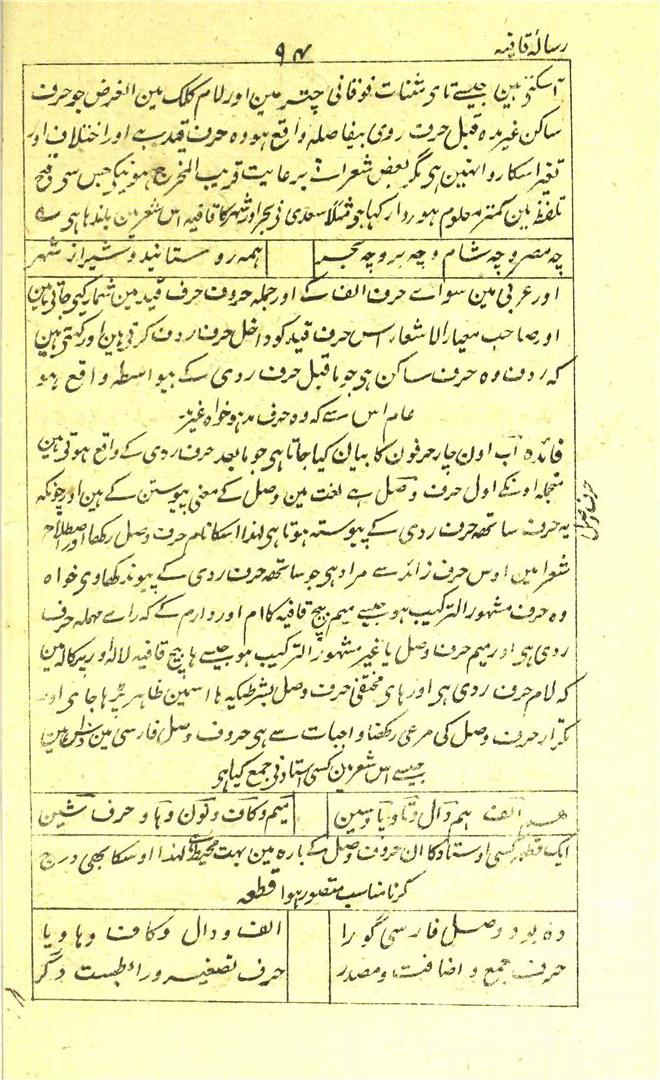 رسالۂ قافیہ
۹۴
آسکتی ہین جیسے تای مثنات فوقانی چتر مین اور لام کلک مین الغرض جو حرف
ساکن غیر مدہ قبل حرف روی بیفاصلہ واقع ہو وہ حرف قید ہے اور اختلاف اور
تغیر اسکا روا نہین ہی مگر بعض شعرا نے برعایت قریب المخرج ہونیکی جس سی قبح
تلفظ مین کمتر معلوم ہو روا رکہا ہو مثلاً سعدی نی بحر اور شہر کا قافیہ اس شعر مین باندہا ہی ے
چہ مصر و چہ شام و چہ بر و چہ بحر
ہمہ روستانید و شیراز شہر
اور عربی مین سواے حرف الف کے اور جملہ حروف حرف قید مین شمار کیی جاتی ہین
اور صاحب معیار الاشعار اس حرف قید کو داخل حرف ردف کرتی ہین اور کہتی ہین
کہ ردف وہ حرف ساکن ہی جو ماقبل حرف روی کے بیواسطہ واقع ہو
عام اس سے کہ وہ حرف مدہ ہو خواہ غیر مدہ
فائدہ اب اون چار حرفون کا بیان کیا جاتا ہی جو مابعد حرف روی کے واقع ہوتی ہین
منجملہ اونکے اول حرف وصل ہے لغت مین وصل کے معنی پیوستن کے ہین اور چونکہ
یہ حرف ساتھ حرف روی کے پیوستہ ہوتا ہی لہذا اسکا نام حرف وصل رکھا اور اصطلاح
حرف وصل
شعرا مین اوس حرف زائد سے مراد ہی جو ساتھ حرف روی کے پیوند کھاوی خواہ
وہ حرف مشہور الترکیب ہو جیسے میم بیچ قافیہ کارم اور دارم کے کہ راے مہملہ حرف
روی ہی اور میم حرف وصل یا غیر مشہور الترکیب ہو جیسے ہا بیچ قافیہ لالہ اور پرکالہ مین
کہ لام حرف روی ہی اور ہای مختفی حرف وصل بشرطیکہ ہا اسمین ظاہر پڑہا جای اور
تکرار حرف وصل کی مرعی رکھنا واجبات سے ہی حروف وصل فارسی مین دس ہین
جیسے اس شعر مین کسی استاد نی جمع کیا ہی
ہم الف ہم دال و تا و یا و سین
میم و کاف و نون و ہا و حرف شین
ایک قطعہ کسی اوستاد کا ان حروف وصل کے بارہ مین بہت محیط ہے لہذا اوسکا بھی درج
کرنا مناسب متصور ہوا قطعہ
دہ بود وصل فارسی گو را
الف و دال و کاف و ہا و یا
حرف جمع و اضافت و مصدر
حرف تصغیر و رابطہست دگر